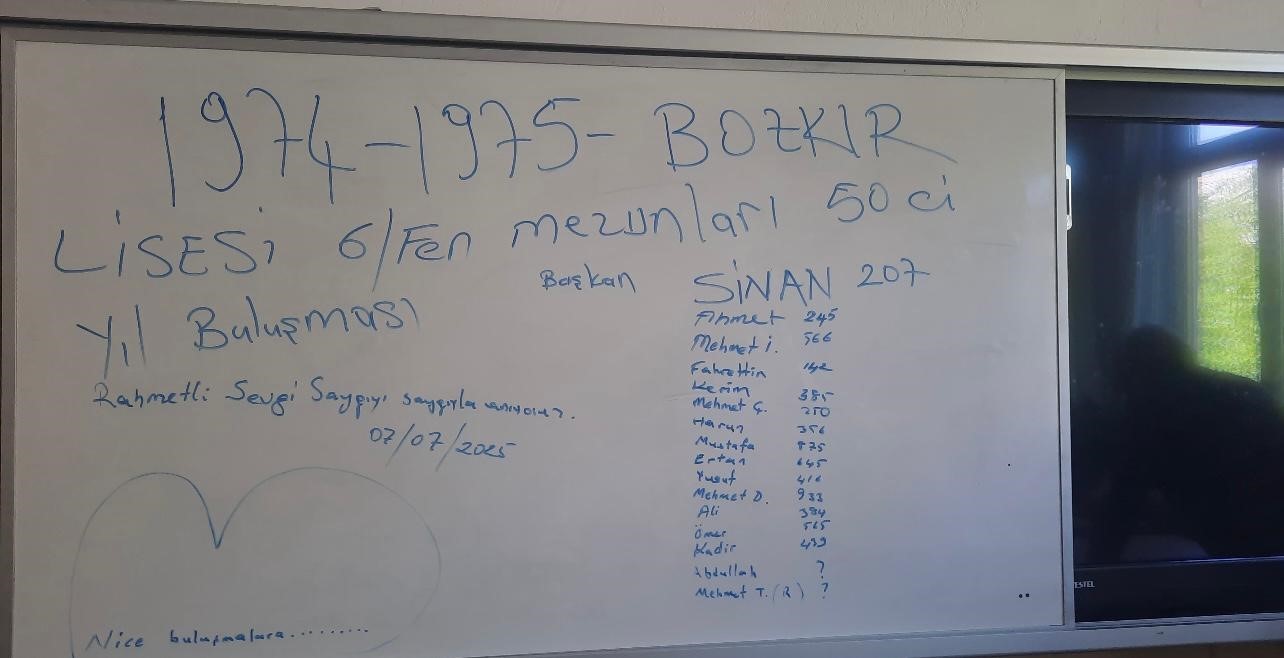 1974-1975- BOZKIR
LİSESİ 6/Fen mezunları 50 ci
Yıl Buluşması
Rahmetli Sevgi Saygıyı saygıyla anıyoruz.
07/07/2025
Başkan SİNAN 207
Ahmet 245
Mehmet i. 566
Fahrettin 142
Kerim 385
Mehmet Ç. 250
Harun 356
Mustafa 875
Ertan 645
Yusuf 416
Mehmet D. 933
Ali 384
Ömer 565
Kadir 439
Abdullah ?
Mehmet T. (R) ?
Nice buluşmalara.........
VESTEL